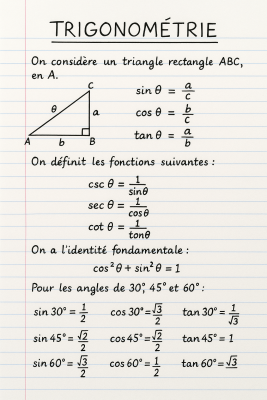 TRIGONOMÉTRIE
On considère un triangle rectangle ABC,
en A.
C
θ
a
A
b
B
sin θ = a/c
cos θ = b/c
tan θ = a/b
On définit les fonctions suivantes :
csc θ = 1/sinθ
sec θ = 1/cosθ
cot θ = 1/tonθ
On a l'identité fondamentale :
cos²θ + sin²θ = 1
Pour les angles de 30°, 45° et 60° :
sin 30° = 1/2 cos 30° = √3/2 tan 30° = 1/√3
sin 45° = √2/2 cos 45° = √2/2 tan 45° = 1
sin 60° = √3/2 cos 60° = 1/2 tan 60° = √3